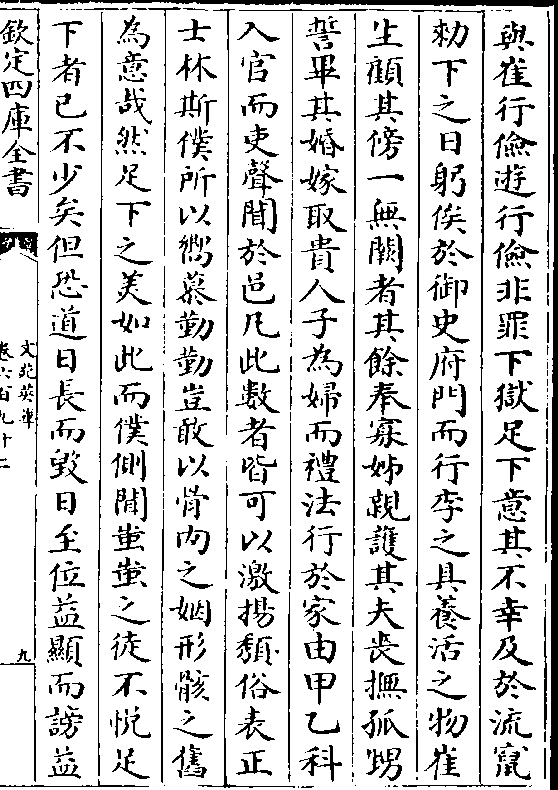 與崔行儉遊行儉非罪下獄足下意其不幸及於流竄
勅下之日躬俟於御史府門而行李之具養活之物崔
生顧其傍一無闕者其餘奉寡姊親護其夫喪撫孤甥
誓畢其婚嫁取貴人子為婦而禮法行於家由甲乙科
入官而吏聲聞於邑凡此數者皆可以激揚頽俗表正
士林斯僕所以嚮慕勤勤豈敢以骨肉之姻形骸之舊
為意哉然足下之美如此而僕側聞蚩蚩之徒不悅足
下者已不少矣但恐道日長而毀日至位益顯而謗益
欽定四庫全書
文苑英華
卷六百九十二
九